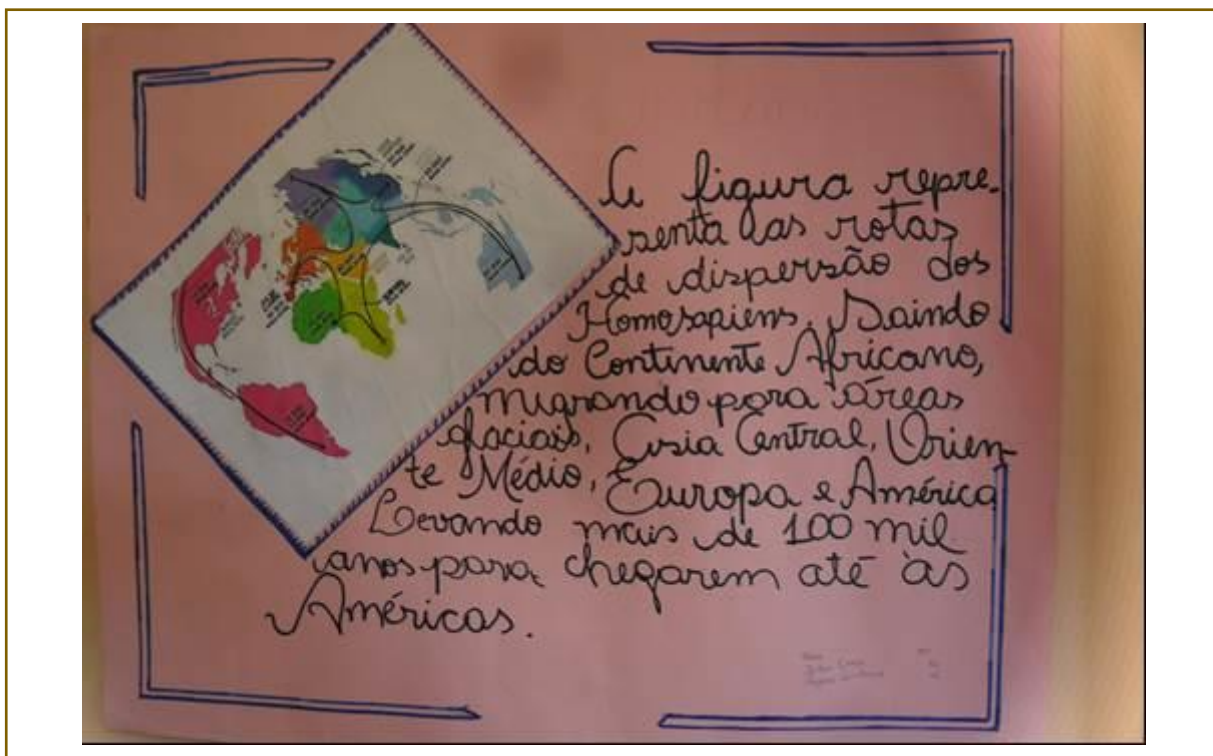 A figura repre-
senta as rotas
de dispersão dos
Homosapiens. Saindo
do Continente Africano,
migrando para áreas
glaciais, Ásia Central, Orien-
te Médio, Europa e América
Levando mais de 100 mil
anos para chegarem até às
Américas.